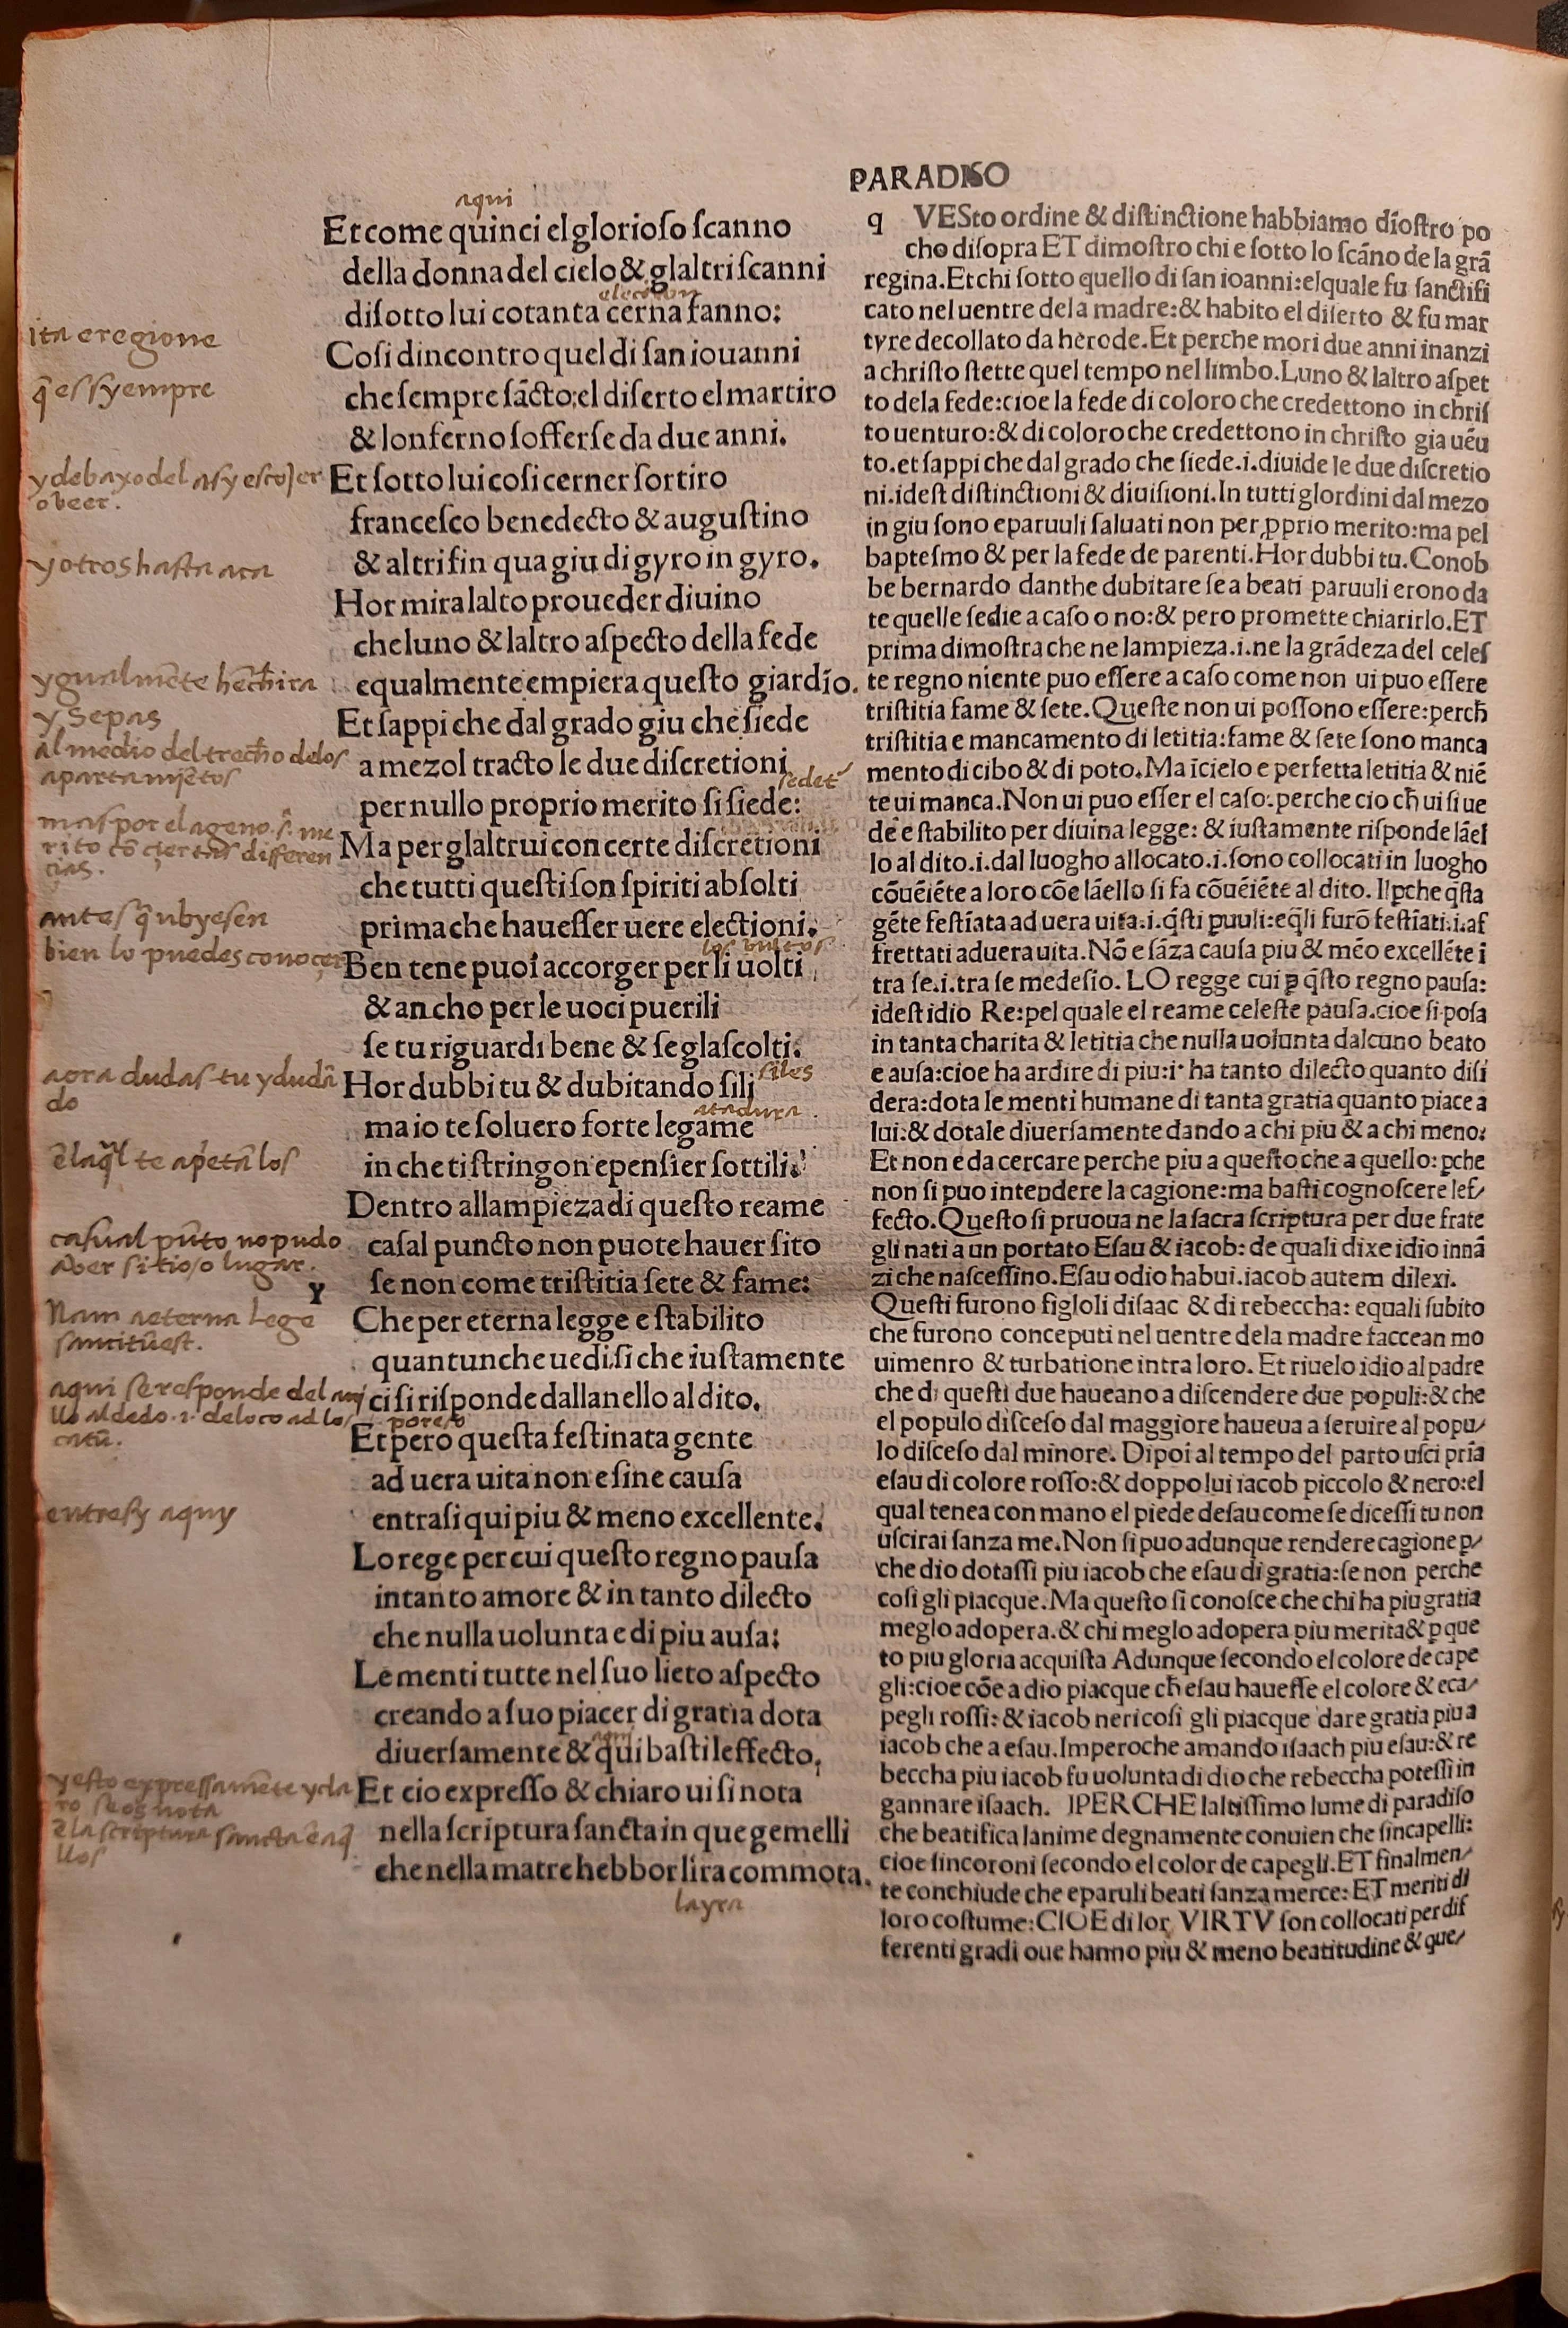 PARADISO
aqui
Et come quinci el glorioſo ſcanno
della donna del cielo & glaltri ſcanni
election
diſotto lui cotanta cerna fanno:
Coſi dincontro quel di ſan iouanni
che ſempre ſācto:el diſerto el martiro
& lonferno ſofferſe da due anni.
Et ſotto lui coſi cerner ſortiro
franceſco benedecto & auguſtino
& altri fin qua giu di gyro in gyro.
Hor mira lalto proueder diuino
che luno & laltro aſpecto della fede
equalmente empiera queſto giardīo.
Et ſappi che dal grado giu che ſiede
a mezol tracto le due diſcretioni
ſedet
per nullo proprio merito ſi ſiede:
Ma per glaltrui con certe diſcretioni
che tutti queſti ſon ſpiriti abſolti
prima che haueſſer uere electioni.
los bultos
Ben tene puoi accorger per li uolti
& ancho per le uoci puerili
ſe tu riguardi bene & ſe glaſcolti.
ſiles
Hor dubbi tu & dubitando ſili
atadura
ma io te ſoluero forte legame
in che ti ſtringon epenſier ſottili.
Dentro allampieza di queſto reame
caſal puncto non puote hauer ſito
ſe non come triſtitia ſete & fame:
Che per eterna legge e ſtabilito
quantunche uedi.ſi che iuſtamente
ci ſi riſponde dallanello al dito.
por eſo
Et pero queſta feſtinata gente
ad uera uita non e ſine cauſa
entraſi qui piu & meno excellente.
Lo rege per cui queſto regno pauſa
in tanto amore & in tanto dilecto
che nulla uolunta e di piu auſa:
Le menti tutte nel ſuo lieto aſpecto
creando a ſuo piacer di gratia dota
aqui
diuerſamente & qui baſti leffecto.
Et cio expreſſo & chiaro ui ſi nota
nella ſcriptura ſancta in que gemelli
che nella matre hebbor lira commota.
layra
ita e regione
q̄ es ſyempre
y debaxo del aſy eſcojer
o beer.
y otros haſta aca
ygualmēte hēchira
y Sepas
al medio del trecħo delos
apartamiētos
mas por el ageno .ſ. me
rito cō ciertas differen
cias.
antes q̄ ubyeſen
bien lo puedes conocer
aora dudas tu y dudā
do
ē la q̄l te apētā los
caſual pūto no pudo
aver ſitio/o lugar.
Y
Nam aeterna Lege
ſancitūeſt.
aqui ſe reſponde del ani
llo al dedo .i. del oco ad lo
catū.
entraſy aquy
y eſto expreſſamēte y cla
ro ſe os nota
ē la ſcriptura ſancta ē aq̄
llos
q VESto ordine & diſtinctione habbiamo dīoſtro po
cho diſopra ET dimoſtro chi e ſotto lo ſcāno de la grā
regina.Et chi ſotto quello di ſan ioanni:elquale fu ſanctifi
cato nel uentre dela madre:& habito el diſerto & fu mar
tyre decollato da herode.Et perche mori due anni inanzi
a chriſto ſtette quel tempo nel limbo.Luno & laltro aſpet
to dela fede:cioe la fede di coloro che credettono in chriſ
to uenturo:& di coloro che credettono in chriſto gia uēu
to.et ſappi che dal grado che ſiede.i.diuide le due diſcretio
ni.ideſt diſtinctioni & diuiſioni.In tutti glordini dal mezo
in giu ſono eparuuli ſaluati non per ꝓprio merito:ma pel
bapteſmo & per la fede de parenti.Hor dubbi tu.Conob
be bernardo danthe dubitare ſe a beati paruuli erono da
te quelle ſedie a caſo o no:& pero promette chiarirlo.ET
prima dimoſtra che ne lampieza.i.ne la grādeza del celeſ
te regno niente puo eſſere a caſo come non ui puo eſſere
triſtitia fame & ſete.Queſte non ui poſſono eſſere:percħ
triſtitia e mancamento di letitia:fame & ſete ſono manca
mento di cibo & di poto.Ma ī cielo e perfetta letitia & niē
te ui manca.Non ui puo eſſer el caſo:perche cio cħ ui ſi ue
de e ſtabilito per diuina legge: & iuſtamente riſponde lāel
lo al dito.i.dal luogho allocato.i.ſono collocati in luogho
cōuēiēte a loro cōe lāello ſi fa cōuēiēte al dito. Il ꝑche q̄ſta
gēte feſtīata ad uera uita.i.q̄ſti ꝑuuli:eq̄li furō feſtīati.i.af
frettati aduera uita.Nō e ſāza cauſa piu & mēo excellēte i
tra ſe.i.tra ſe medeſio. LO regge cui ꝑ q̄ſto regno pauſa:
ideſt idio Re:pel quale el reame celeſte pauſa.cioe ſi poſa
in tanta charita & letitia che nulla uolunta dalcuno beato
e auſa:cioe ha ardire di piu:i· ha tanto dilecto quanto diſi
dera:dota le menti humane di tanta gratia quanto piace a
lui:& dotale diuerſamente dando a chi piu & a chi meno:
Et non e da cercare perche piu a queſto che a quello: ꝑche
non ſi puo intendere la cagione:ma baſti cognoſcere lef/
fecto.Queſto ſi pruoua ne la ſacra ſcriptura per due frate
gli nati a un portato Eſau & iacob: de quali dixe idio innā
zi che naſceſſino.Eſau odio habui.iacob autem dilexi.
Queſti furono figloli diſaac & di rebeccha: equali ſubito
che furono conceputi nel uentre dela madre faccean mo
uimenro & turbatione intra loro. Et riuelo idio al padre
che di queſti due haueano a diſcendere due populi:& che
el populo diſceſo dal maggiore haueua a ſeruire al popu/
lo diſceſo dal minore. Dipoi al tempo del parto uſci prīa
eſau di colore roſſo:& doppo lui iacob piccolo & nero:el
qual tenea con mano el piede deſau come ſe diceſſi tu non
uſcirai ſanza me.Non ſi puo adunque rendere cagione p/
che dio dotaſſi piu iacob che eſau di gratia:ſe non perche
coſi gli piacque.Ma queſto ſi conoſce che chi ha piu gratia
meglo adopera.& chi meglo adopera piu merita& ꝑ que
to piu gloria acquiſta Adunque ſecondo el colore de cape
gli:cioe cōe a dio piacque cħ eſau haueſſe el colore & eca/
pegli roſſi: & iacob neri coſi gli piacque dare gratia piu a
iacob che a eſau.Imperoche amando iſaach piu eſau:& re
beccha piu iacob fu uolunta di dio che rebeccha poteſſi in
gannare iſaach. IPERCHE laltiſſimo lume di paradiſo
che beatifica lanime degnamente conuien che ſincapelli:
cioe ſincoroni ſecondo el color de capegli.ET finalmen/
te conchiude che eparuli beati ſanza merce: ET meriti di
loro coſtume:CIOE di lor VIRTV ſon collocati per dif
ferenti gradi oue hanno piu & meno beatitudine & que/